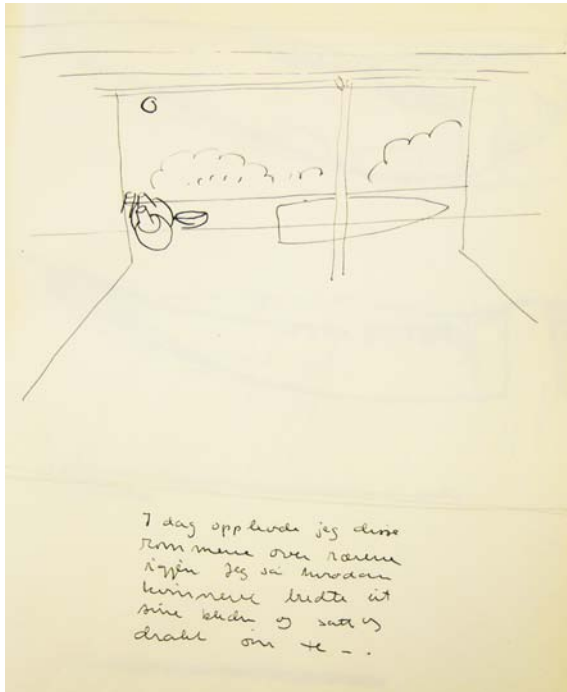 I dag opplevde jeg disse
rommene over
igjen Jeg så hvordan
kvinnene bredte ut
sine og satt og
drakk sin te - .